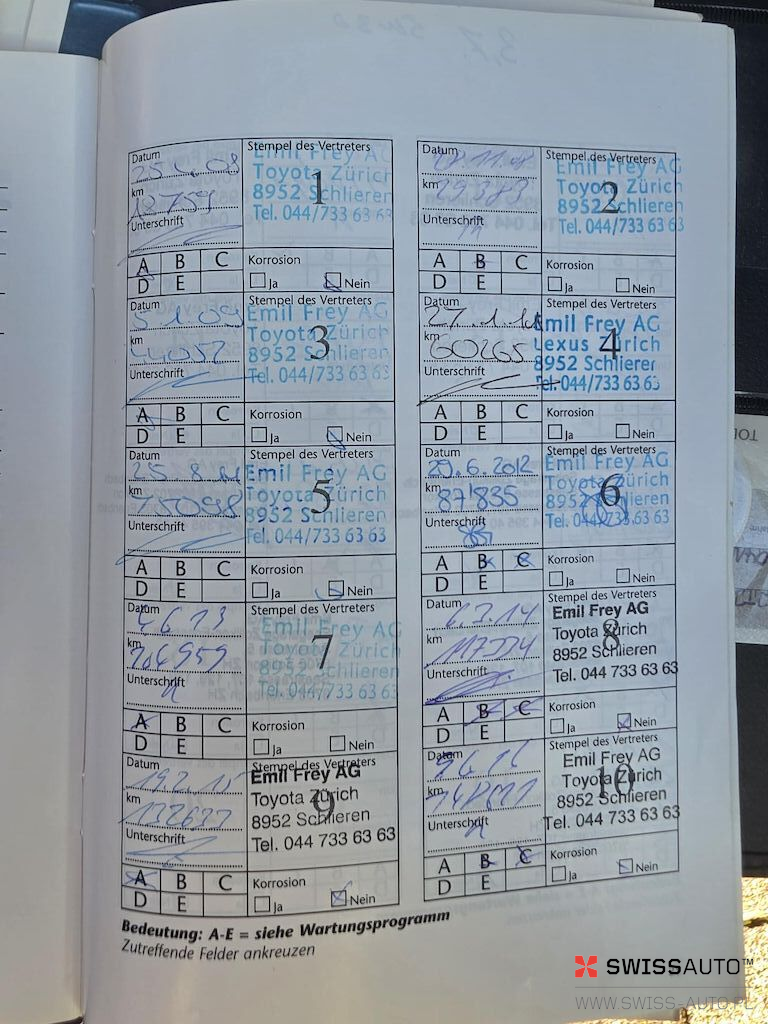 Datum
Stempel des Vertreters
Emil Frey AG
Toyota Zürich
km
8952 Schlieren
1
Tel. 044/733 63 63
Unterschrift
A B C
D E
Korrosion
Ja Nein
Datum
Stempel des Vertreters
Emil Frey AG
Toyota Zürich
km
29383
8952 Schlieren
2
Tel. 044/733 63 63
Unterschrift
A B C
D E
Korrosion
Ja Nein
Datum
5 1 09
Stempel des Vertreters
Emil Frey AG
Toyota Zürich
km
44052
8952 Schlieren
3
Tel. 044/733 63 63
Unterschrift
A B C
D E
Korrosion
Ja Nein
Datum
Stempel des Vertreters
Emil Frey AG
Lexus Zürich
km
60265
8952 Schlieren
4
Tel. 044/733 63 63
Unterschrift
A B C
D E
Korrosion
Ja Nein
Datum
Stempel des Vertreters
Emil Frey AG
Toyota Zürich
km
8952 Schlieren
5
Tel. 044/733 63 63
Unterschrift
A B C
D E
Korrosion
Ja Nein
Datum
Stempel des Vertreters
Emil Frey AG
Toyota Zürich
km
87'835
8952 Schlieren
6
Tel. 044/733 63 63
Unterschrift
A B C
D E
Korrosion
Ja Nein
Datum
4 6 13
Stempel des Vertreters
Emil Frey AG
Toyota Zürich
km
104959
8952 Schlieren
7
Tel. 044/733 63 63
Unterschrift
A B C
D E
Korrosion
Ja Nein
Datum
Stempel des Vertreters
Emil Frey AG
Toyota Zürich
km
8952 Schlieren
8
Tel. 044 733 63 63
Unterschrift
A B C
D E
Korrosion
Ja Nein
Datum
19 2. 15
Stempel des Vertreters
Emil Frey AG
Toyota Zürich
km
132637
8952 Schlieren
9
Tel. 044 733 63 63
Unterschrift
A B C
D E
Korrosion
Ja Nein
Datum
Stempel des Vertreters
Emil Frey AG
Toyota Zürich
km
8952 Schlieren
10
Tel. 044 733 63 63
Unterschrift
A B C
D E
Korrosion
Ja Nein
Bedeutung: A-E = siehe Wartungsprogramm
Zutreffende Felder ankreuzen
SWISSAUTO™
WWW.SWISS-AUTO.PL